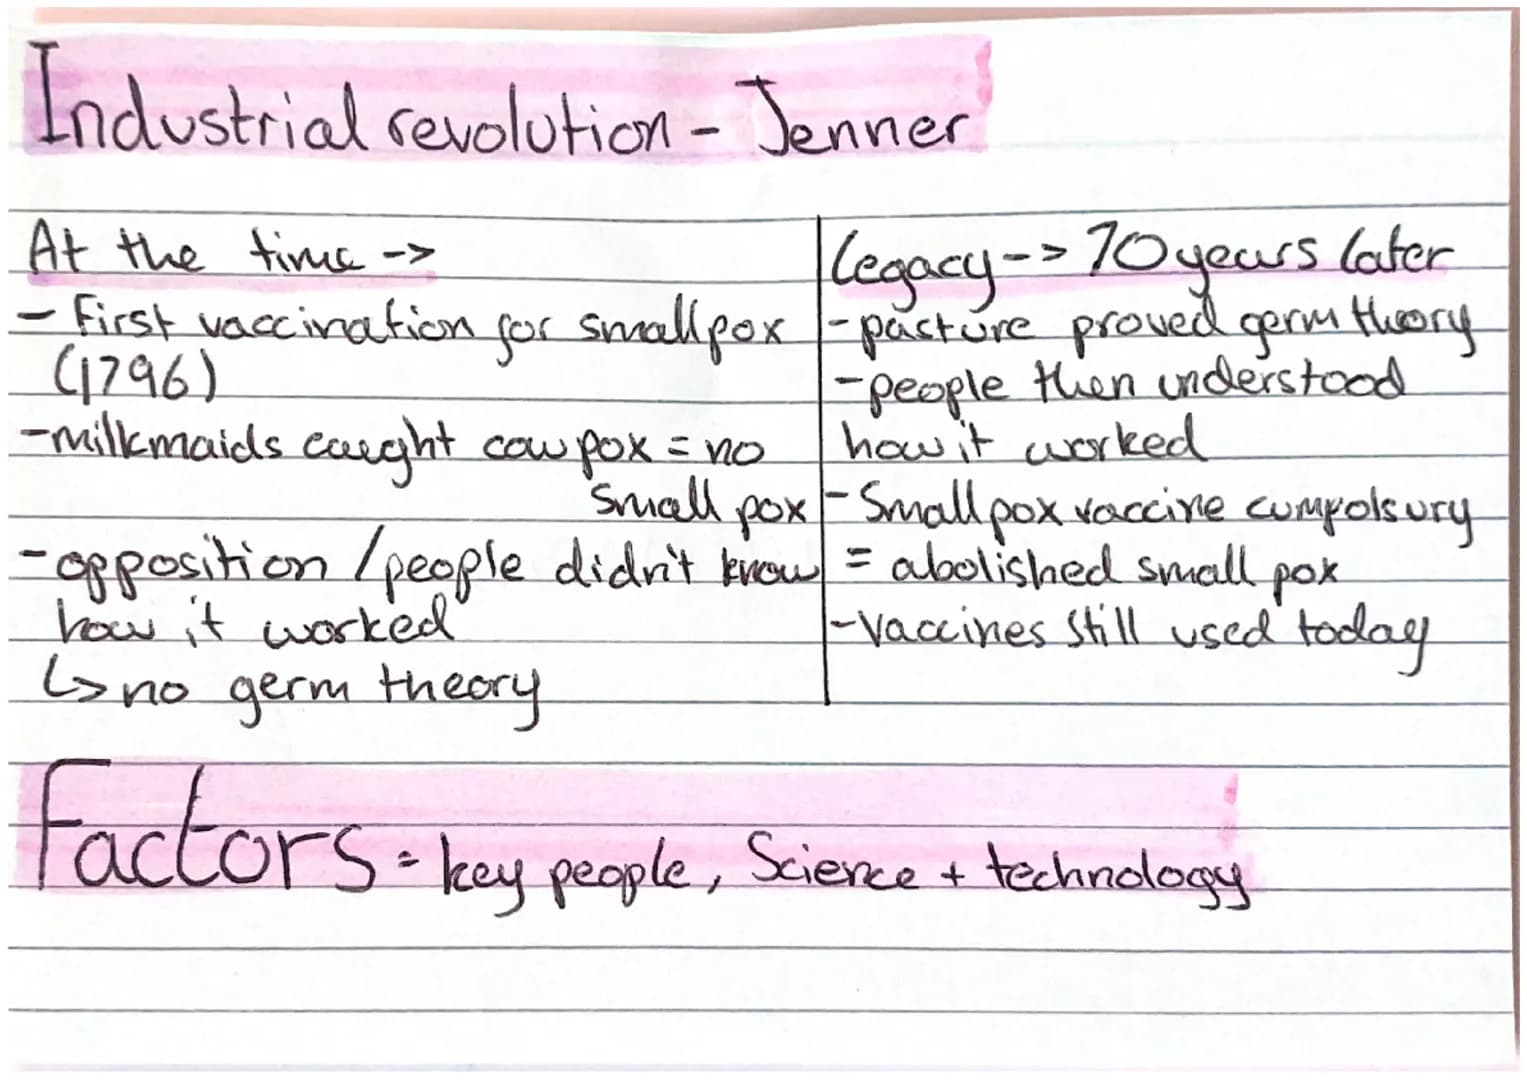 Industrial revolution - Jenner
At the time ->
- First vaccination for smallpox
(1796)
- milkmaids caught cow pox = no
small pox
- opposition / people didn't know
how it worked
↳ no germ theory
Legacy --> 70 years later
- pasture proved germ theory
- people then understood
how it worked
- Small pox vaccine cumpolsury
= abolished small pox
- vaccines still used today
Factors = key people, Science + technology